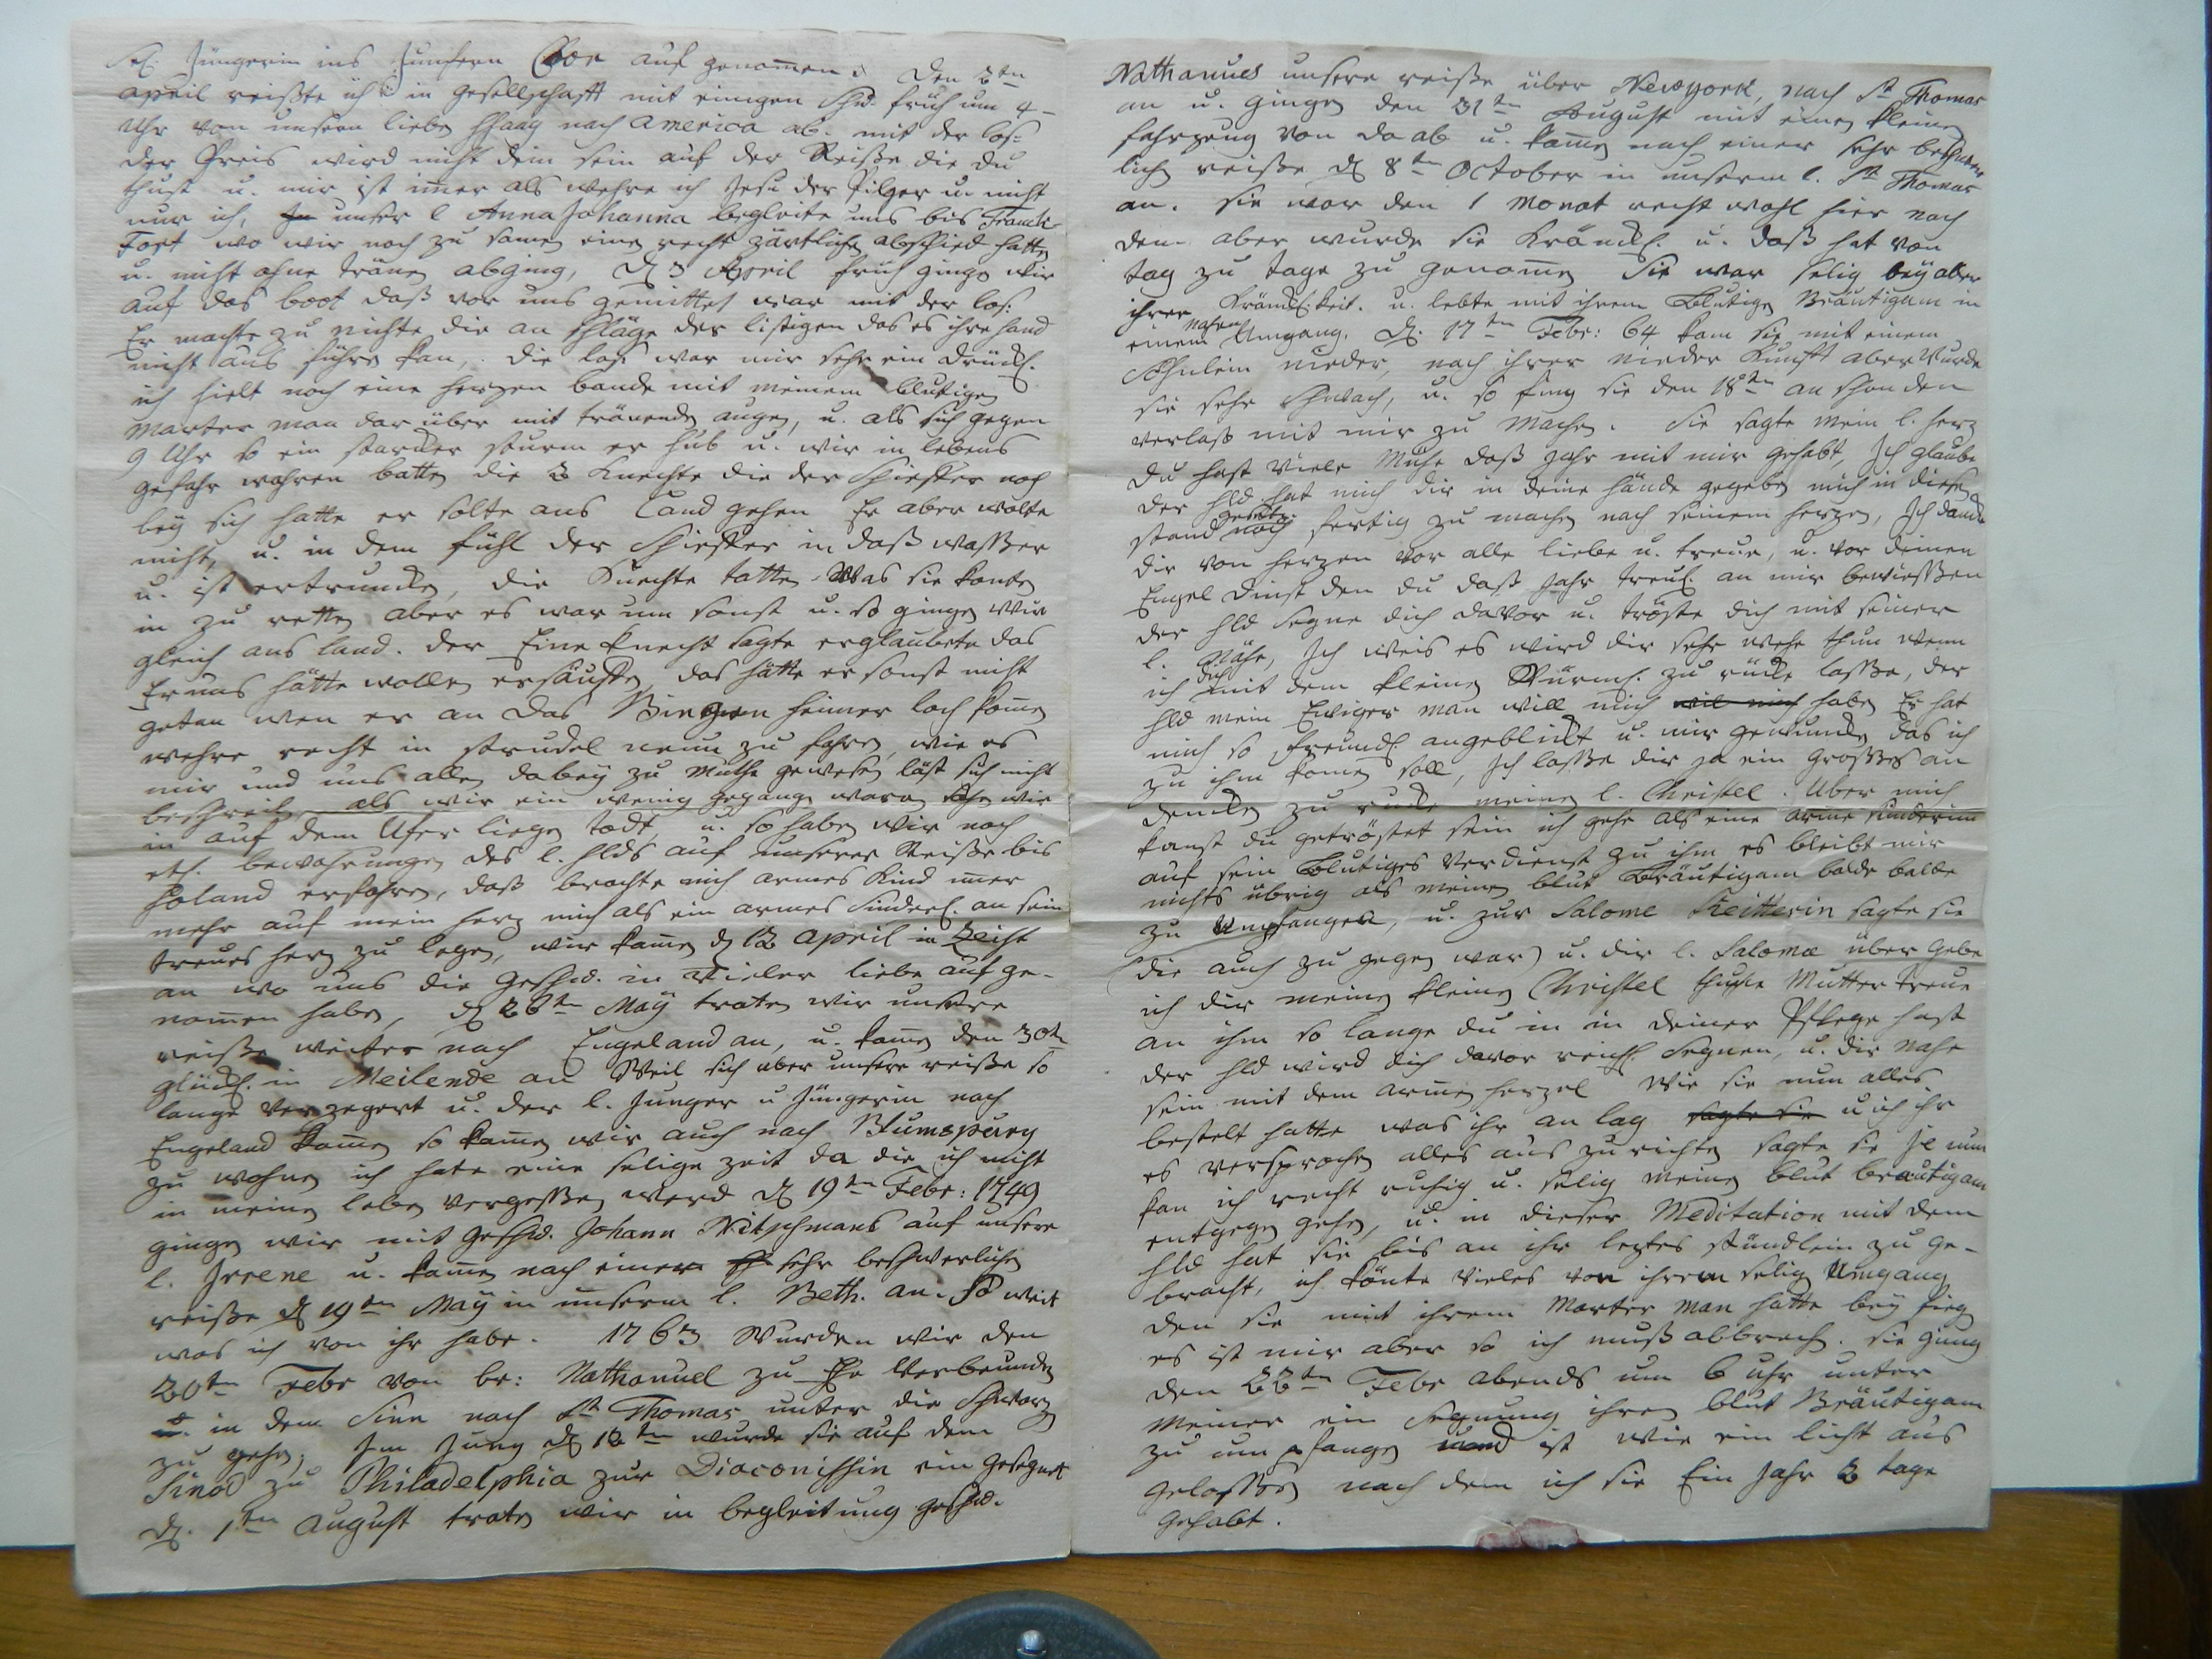 sel. Jüngerin ins Junfern Chor auf genomen. Den 2ten
april reißte ich in gesellschafft mit einigen Schw. früh um 4
Uhr von unsern liebe Hhaag nach America ab. mit der los:
der Preis wird nicht dein sein auf der Reiße die du
thust u. mir ist imer als wehre ich Jesu der Pilger u. nicht
nur ich, unser l Anna Johanna begleite uns bis Franck-
fort wo wir noch zu samen einen recht zärtlichen abschied hatten
u. nicht ohne tränen abging, d 3 April früh gingen wir
auf das boot daß vor uns gemittet war mit der los:
Er machte zu nichte die an schläge der listigen das es ihre hand
nicht aus führen kan, die los war mir sehr ein drückl.
ich hielt noch eine herzen bande mit meinem blutigen
marter man dar über mit tränenden augen, u. als sich gegen
9 Uhr so ein starcker sturm er hub u. wir in lebens
gefahr wahren batten die 2 Knechte die der schieffer noch
bey sich hatte er solte ans Land gehen Er aber wolte
nicht, u. in dem fühl der schieffer in daß waßer
u. ist ertruncken, die Knechte tatten was sie konten
in zu retten aber es war um sonst u. so gingen wir
gleich ans land. der Eine knecht sagte er glaubete das
Er uns hätte wollen ersäuffen, das hätte er sonst nicht
getan wen er an das Bingen heimer loch komen
wehre recht in strudel nein zu fahren, wie es
mir und uns allen dabey zu muthe gewesen läst sich nicht
beschreiben, als wir ein wenig gegangen waren sahen wir
in auf dem Ufer liegen todt, u. so haben wir noch
etl. bewahrungen des l. Hlds auf unserer Reiße bis
Holand erfahren, daß brachte mich armes Kind imer
mehr auf mein herz mich als ein armes Sünderl. an sein
treues herz zu legen, wir kamen d 12 april in Zeist
an wo uns die Geschw. in vieler liebe auf ge-
nomen haben, d 26ten May traten wir unsere
reiße weiter nach Engeland an, u. kamen den 30t
glückl. in Meilende an Weil sich aber unsere reiße so
lange verzegert u. der l. Junger u Jüngerin nach
Engeland kamen so kamen wir auch nach Blumspury
zu wohnen ich hate eine selige zeit da die ich nicht
in meinen leben vergeßen werd d 19ten Febr: 1749
gingen wir mit Geschw. Johann Nitschmans auf unsere
l. Jrrene u. kamen nach einer sehr beschwerlichen
reiße d 19ten May in unserm l. Beth. an. So weit
was ich von ihr habe. 1763 Wurden wir den
20ten Febr von br: Nathanael zu Ehe Verbeunden
u. in dem Sinn nach St Thomas unter die Schwarzen
zu gehen, Im Juny d 12ten wurde sie auf dem
Sinod zu Philadelphia zur Diaconissin ein gesegnet
d. 1ten August traten wir in begleitung geschw.
Nathanaels unsere reiße über Newyork, nach St Thomas
an u. gingen den 31ten August mit einen kleinen
fahrzeug von da ab u. kamen nach einer sehr beschwer
lichen reiße d 8ten October in unserm l. St Thomas
an. Sie war den 1 Monat recht wohl hier nach
dem aber wurde sie Kräncklich. u. daß hat von
tag zu tage zu genomen Sie war selig bey aller
ihrer Kränckl:keit. u. lebte mit ihrem Blutigen Bräutigam in
einem nahen Umgang. d. 17ten Febr: 64 kam sie mit einem
Söhnlein nieder, nach ihrer nieder Kunfft aber Wurde
sie sehr schwach, u. so fing sie den 18ten an schon den
verlaß mit mir zu machen. Sie sagte mein l. herz
du hast viele Mühe daß Jahr mit mir gehabt, Ich glaube
der Hld hat mich dir in deine hände gegeben mich in diesen
stand noch fertig zu machen nach seinem herzen, Ich dancke
dir von herzen vor alle liebe u. treue, u. vor deinen
Engel dinst den du daß Jahr treul. an mir bewießen
der Hld segne dich davor u. tröste dich mit seiner
l. Nähe, Ich weis es wird dir sehr wehe thun wenn
ich dich mit dem kleinen Würml. zu rücke laße, der
Hld mein Ewiger man will mich wil mich haben Er hat
mich so freundl angeblickt u. mir gewuncken das ich
zu ihm komen soll, Ich laße dir ja ein großes an
dencken zu rücke meinen l. Christel. Uber mich
kanst du getröstet sein ich gehe als eine arme sünderinn
auf sein Blutiges Verdienst zu ihm es bleibt mir
nichts übrig als meinen blut Bräutigam balde balde
zu Umpfangen, u. zur Salome Keitterin sagte sie
(die auch zu gegen war) u. dir l. Salome über Gebe
ich dir meinen kleinen Christel thuhe Mutter treue
an ihm so lange du in in deiner Pflege hast
der Hld wird dich davor reichl Segnen, u. dir nahe
sein mit dem armen herzel Wie sie nun alles
bestelt hatte was ihr an lag sagte sie u ich ihr
es versprochen alles aus zu richten sagte sie Je nun
kan ich recht ruhig u. selig meinen blut bräutigam
entgegen gehen, u. in dieser Meditation mit dem
Hld hat sie bis an ihr leztes stündlein zu ge-
bracht, ich könte vieles von ihrem selig Umgang
den sie mit ihrem Marter man hatte bey fiegen
es ist mir aber so ich muß abbrech. sie gieng
den 22ten Febr abends um 6 Uhr unter
Meiner ein Segnung ihren blut Bräutigam
zu um pfangen und ist wie ein licht aus
geloschen nach dem ich sie Ein Jahr 2 tage
gehabt.